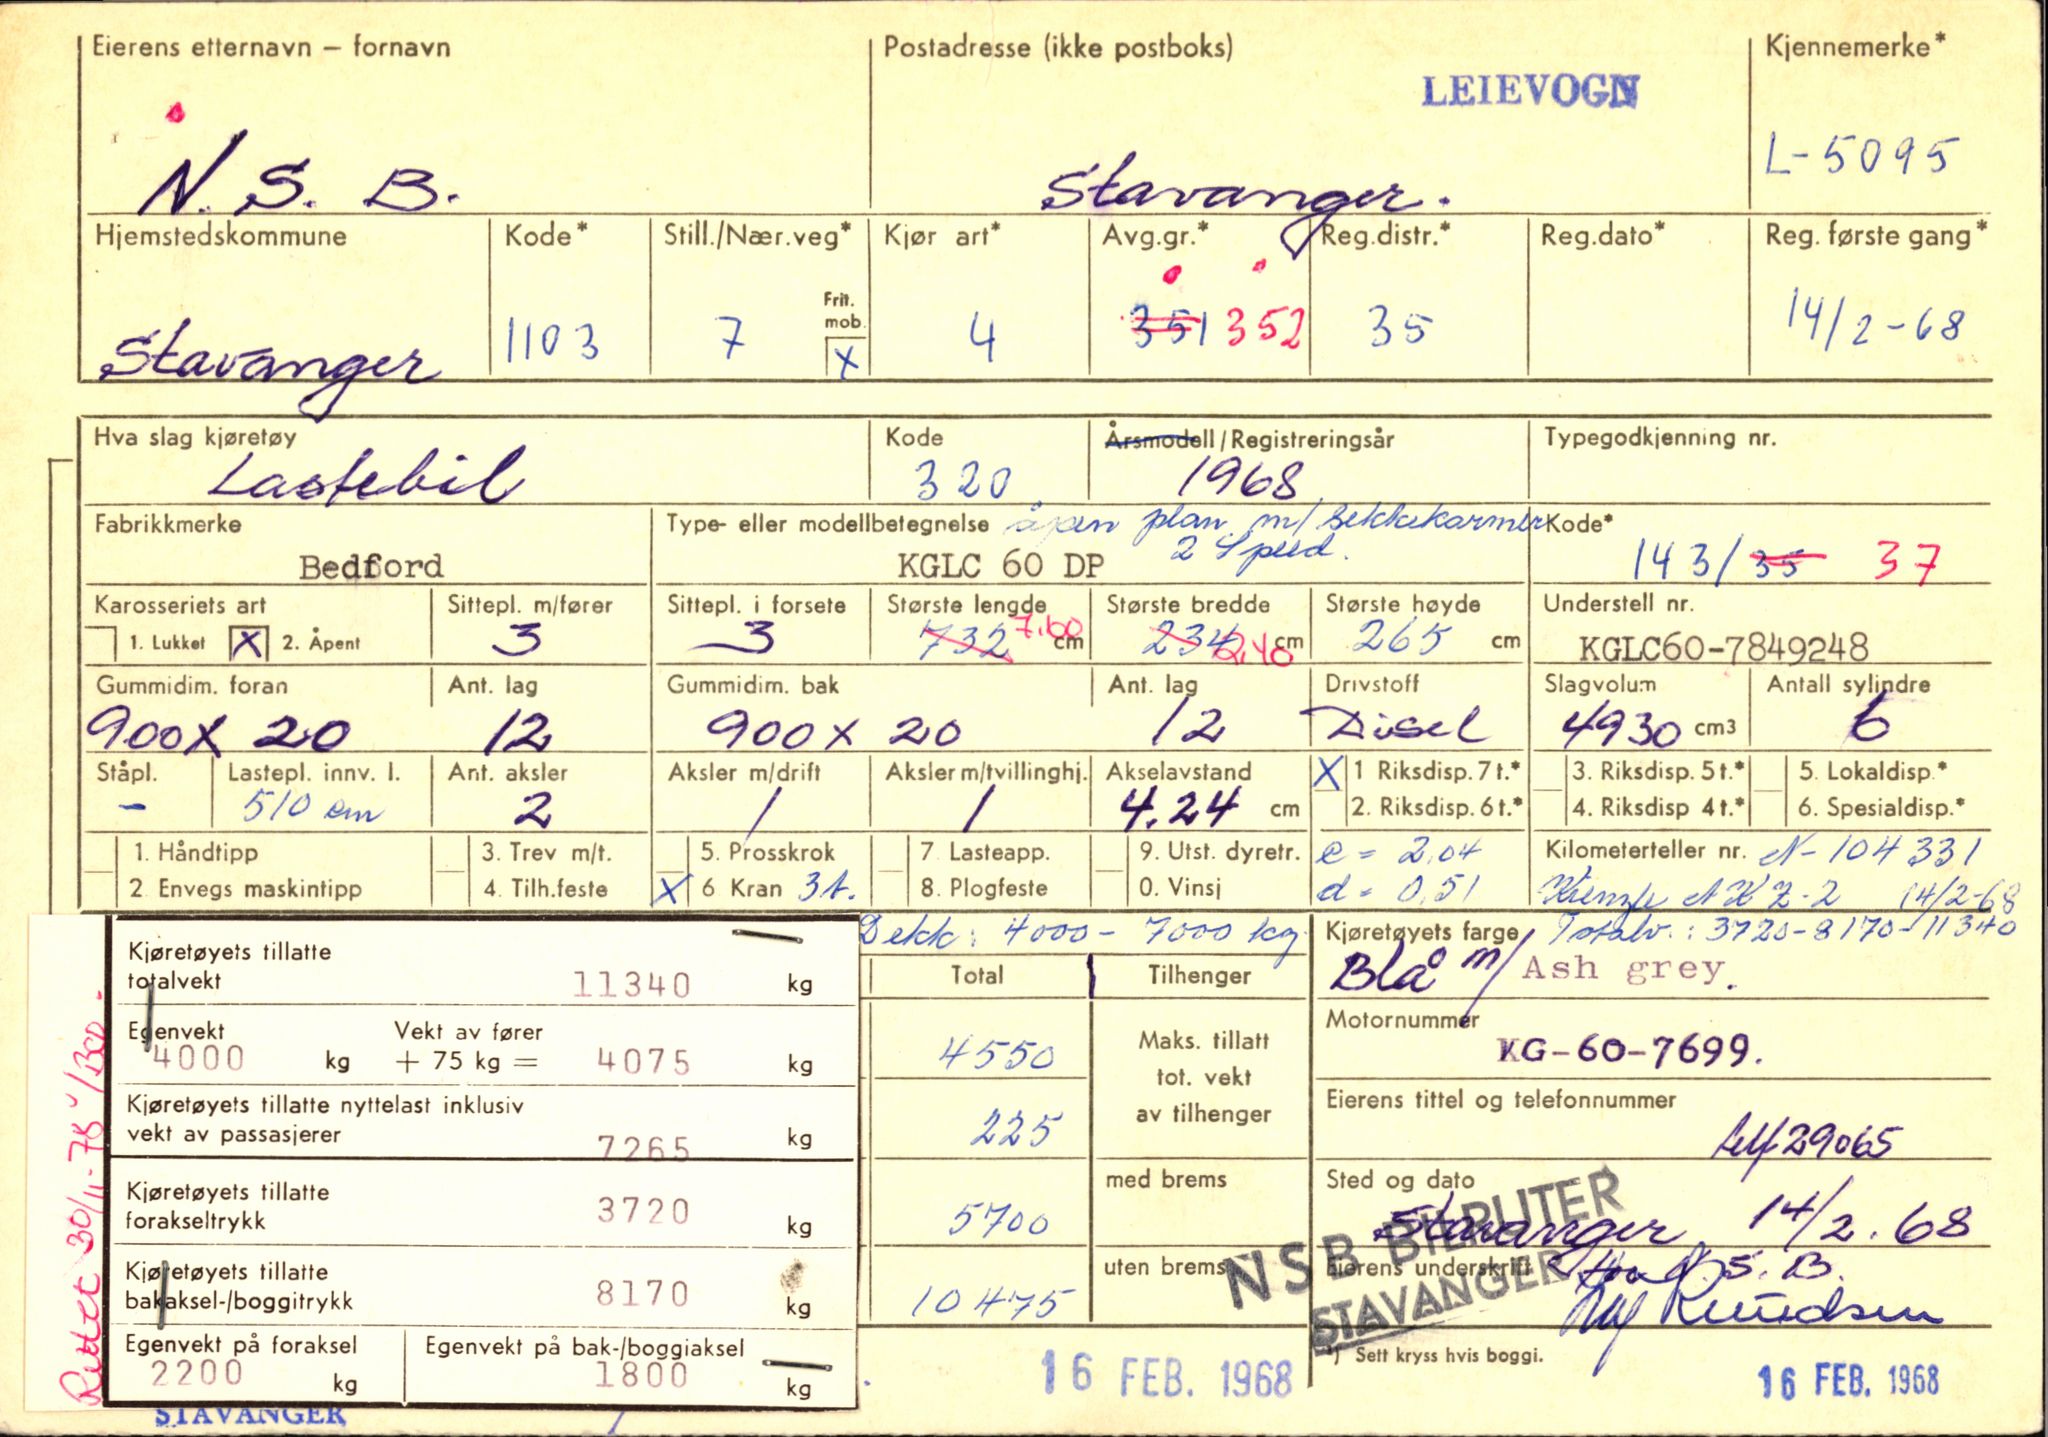 Eierens etternavn – fornavn
Postadresse (ikke postboks)
Kjennemerke*
LEIEVOGN
N. S. B.
Stavanger.
L-5095
Hjemstedskommune
Kode*
Still./Nær.veg*
Kjør art*
Avg.gr.*
Reg.distr.*
Reg.dato*
Reg. første gang*
Frit.
mob.
Stavanger
1103
7
X
4
351 352
35
14/2-68
Hva slag kjøretøy
Kode
Årsmodell/Registreringsår
Typegodkjenning nr.
Lastebil
320
1968
Fabrikkmerke
Type- eller modellbetegnelse
åpen plan m/ bekkekarmer
Kode*
2 Speed.
Bedford
KGLC 60 DP
143/35 37
Karosseriets art
Sittepl. m/fører
Sittepl. i forsete
Største lengde
Største bredde
Største høyde
Understell nr.
1. Lukket
X
2. Åpent
3
3
732 7.60 cm
234 2,40 cm
265 cm
KGLC60-7849248
Gummidim. foran
Ant. lag
Gummidim. bak
Ant. lag
Drivstoff
Slagvolum
Antall sylindre
900 x 20
12
900 x 20
12
Disel
4930 cm3
6
Ståpl.
Lastepl. innv. l.
Ant. aksler
Aksler m/drift
Aksler m/tvillinghj.
Akselavstand
X
1 Riksdisp. 7 t.*
3. Riksdisp. 5 t.*
5. Lokaldisp.*
–
510 cm
2
1
1
4.24 cm
2. Riksdisp. 6 t.*
4. Riksdisp 4 t.*
6. Spesialdisp.*
1. Håndtipp
3. Trev m/t.
5. Prosskrok
7. Lasteapp.
9. Utst. dyretr.
c = 2,04
Kilometerteller nr. N-104331
2. Envegs maskintipp
4. Tilh.feste
X
6 Kran 3 t.
8. Plogfeste
0. Vinsj
d = 0,51
Kienzle 14/2-68
Dekk: 4000 – 7000 kg
Kjøretøyets farge
Totalv.: 3720-8170-11340
Blå m/ Ash grey.
Kjøretøyets tillatte
totalvekt
11340 kg
Total
Tilhenger
Egenvekt
4000 kg
Vekt av fører
+ 75 kg =
4075 kg
4550
Maks. tillatt
tot. vekt
av tilhenger
Motornummer
KG-60-7699.
Kjøretøyets tillatte nyttelast inklusiv
vekt av passasjerer
7265 kg
225
Eierens tittel og telefonnummer
tlf 29065
Kjøretøyets tillatte
forakseltrykk
3720 kg
5700
med brems
Sted og dato
Stavanger 14/2.68
Kjøretøyets tillatte
bakaksel-/boggitrykk
8170 kg
10475
uten brems
Eierens underskrift
N. S. B.
Knudsen
NSB BILRUTER
STAVANGER
Egenvekt på foraksel
2200 kg
Egenvekt på bak-/boggiaksel
1800 kg
*) Sett kryss hvis boggi.
16 FEB. 1968
16 FEB. 1968
STAVANGER
Rettet 30/11-78